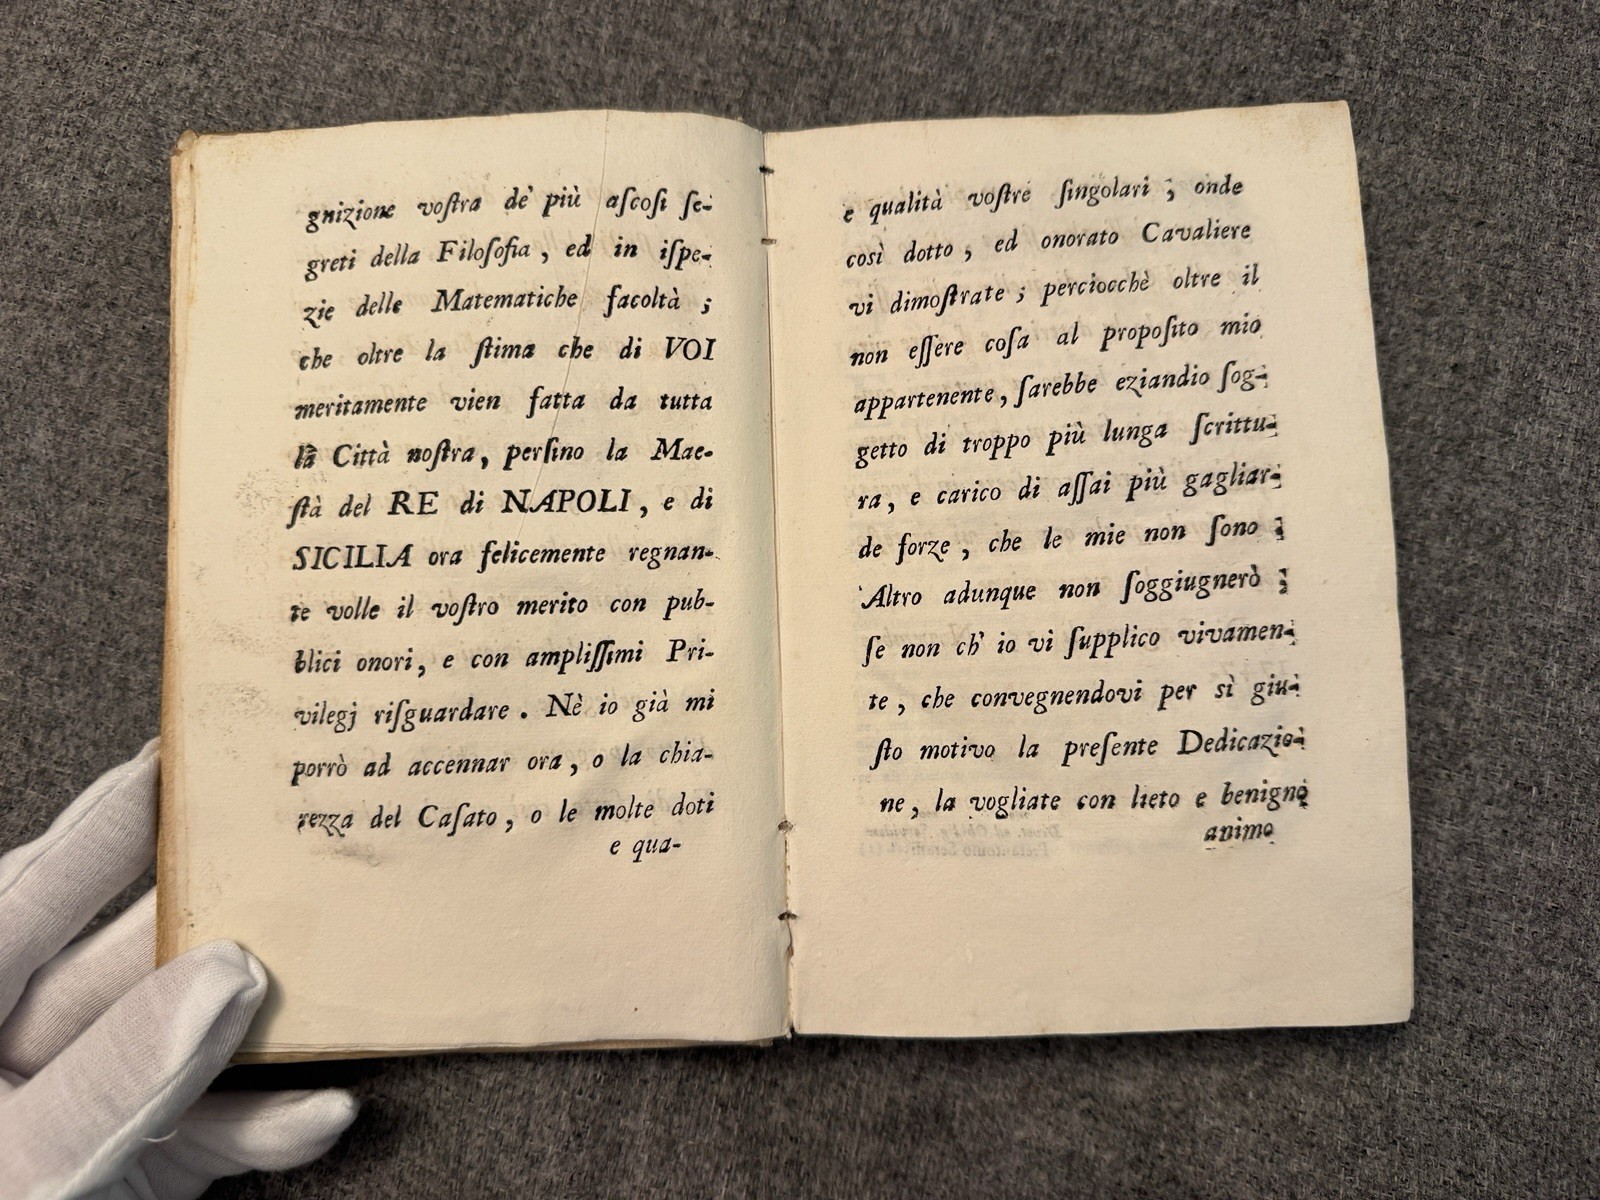 gnizione voſtra de' più aſcoſi ſe-
greti della Filoſofia, ed in iſpe-
zie delle Matematiche facoltà;
che oltre la ſtima che di VOI
meritamente vien fatta da tutta
la Città noſtra, perſino la Mae-
ſtà del RE di NAPOLI, e di
SICILIA ora felicemente regnan-
te volle il voſtro merito con pub-
blici onori, e con ampliſſimi Pri-
vilegj riſguardare. Nè io già mi
porrò ad accennar ora, o la chia-
rezza del Caſato, o le molte doti
e qua-
e qualità voſtre ſingolari; onde
così dotto, ed onorato Cavaliere
vi dimoſtrate; perciocchè oltre il
non eſſere coſa al propoſito mio
appartenente, ſarebbe eziandio ſog-
getto di troppo più lunga ſcrittu-
ra, e carico di aſſai più gagliar-
de forze, che le mie non ſono;
Altro adunque non ſoggiugnerò;
ſe non ch' io vi ſupplico vivamen-
te, che convegnendovi per sì giu-
ſto motivo la preſente Dedicazio-
ne, la vogliate con lieto e benigno
animo